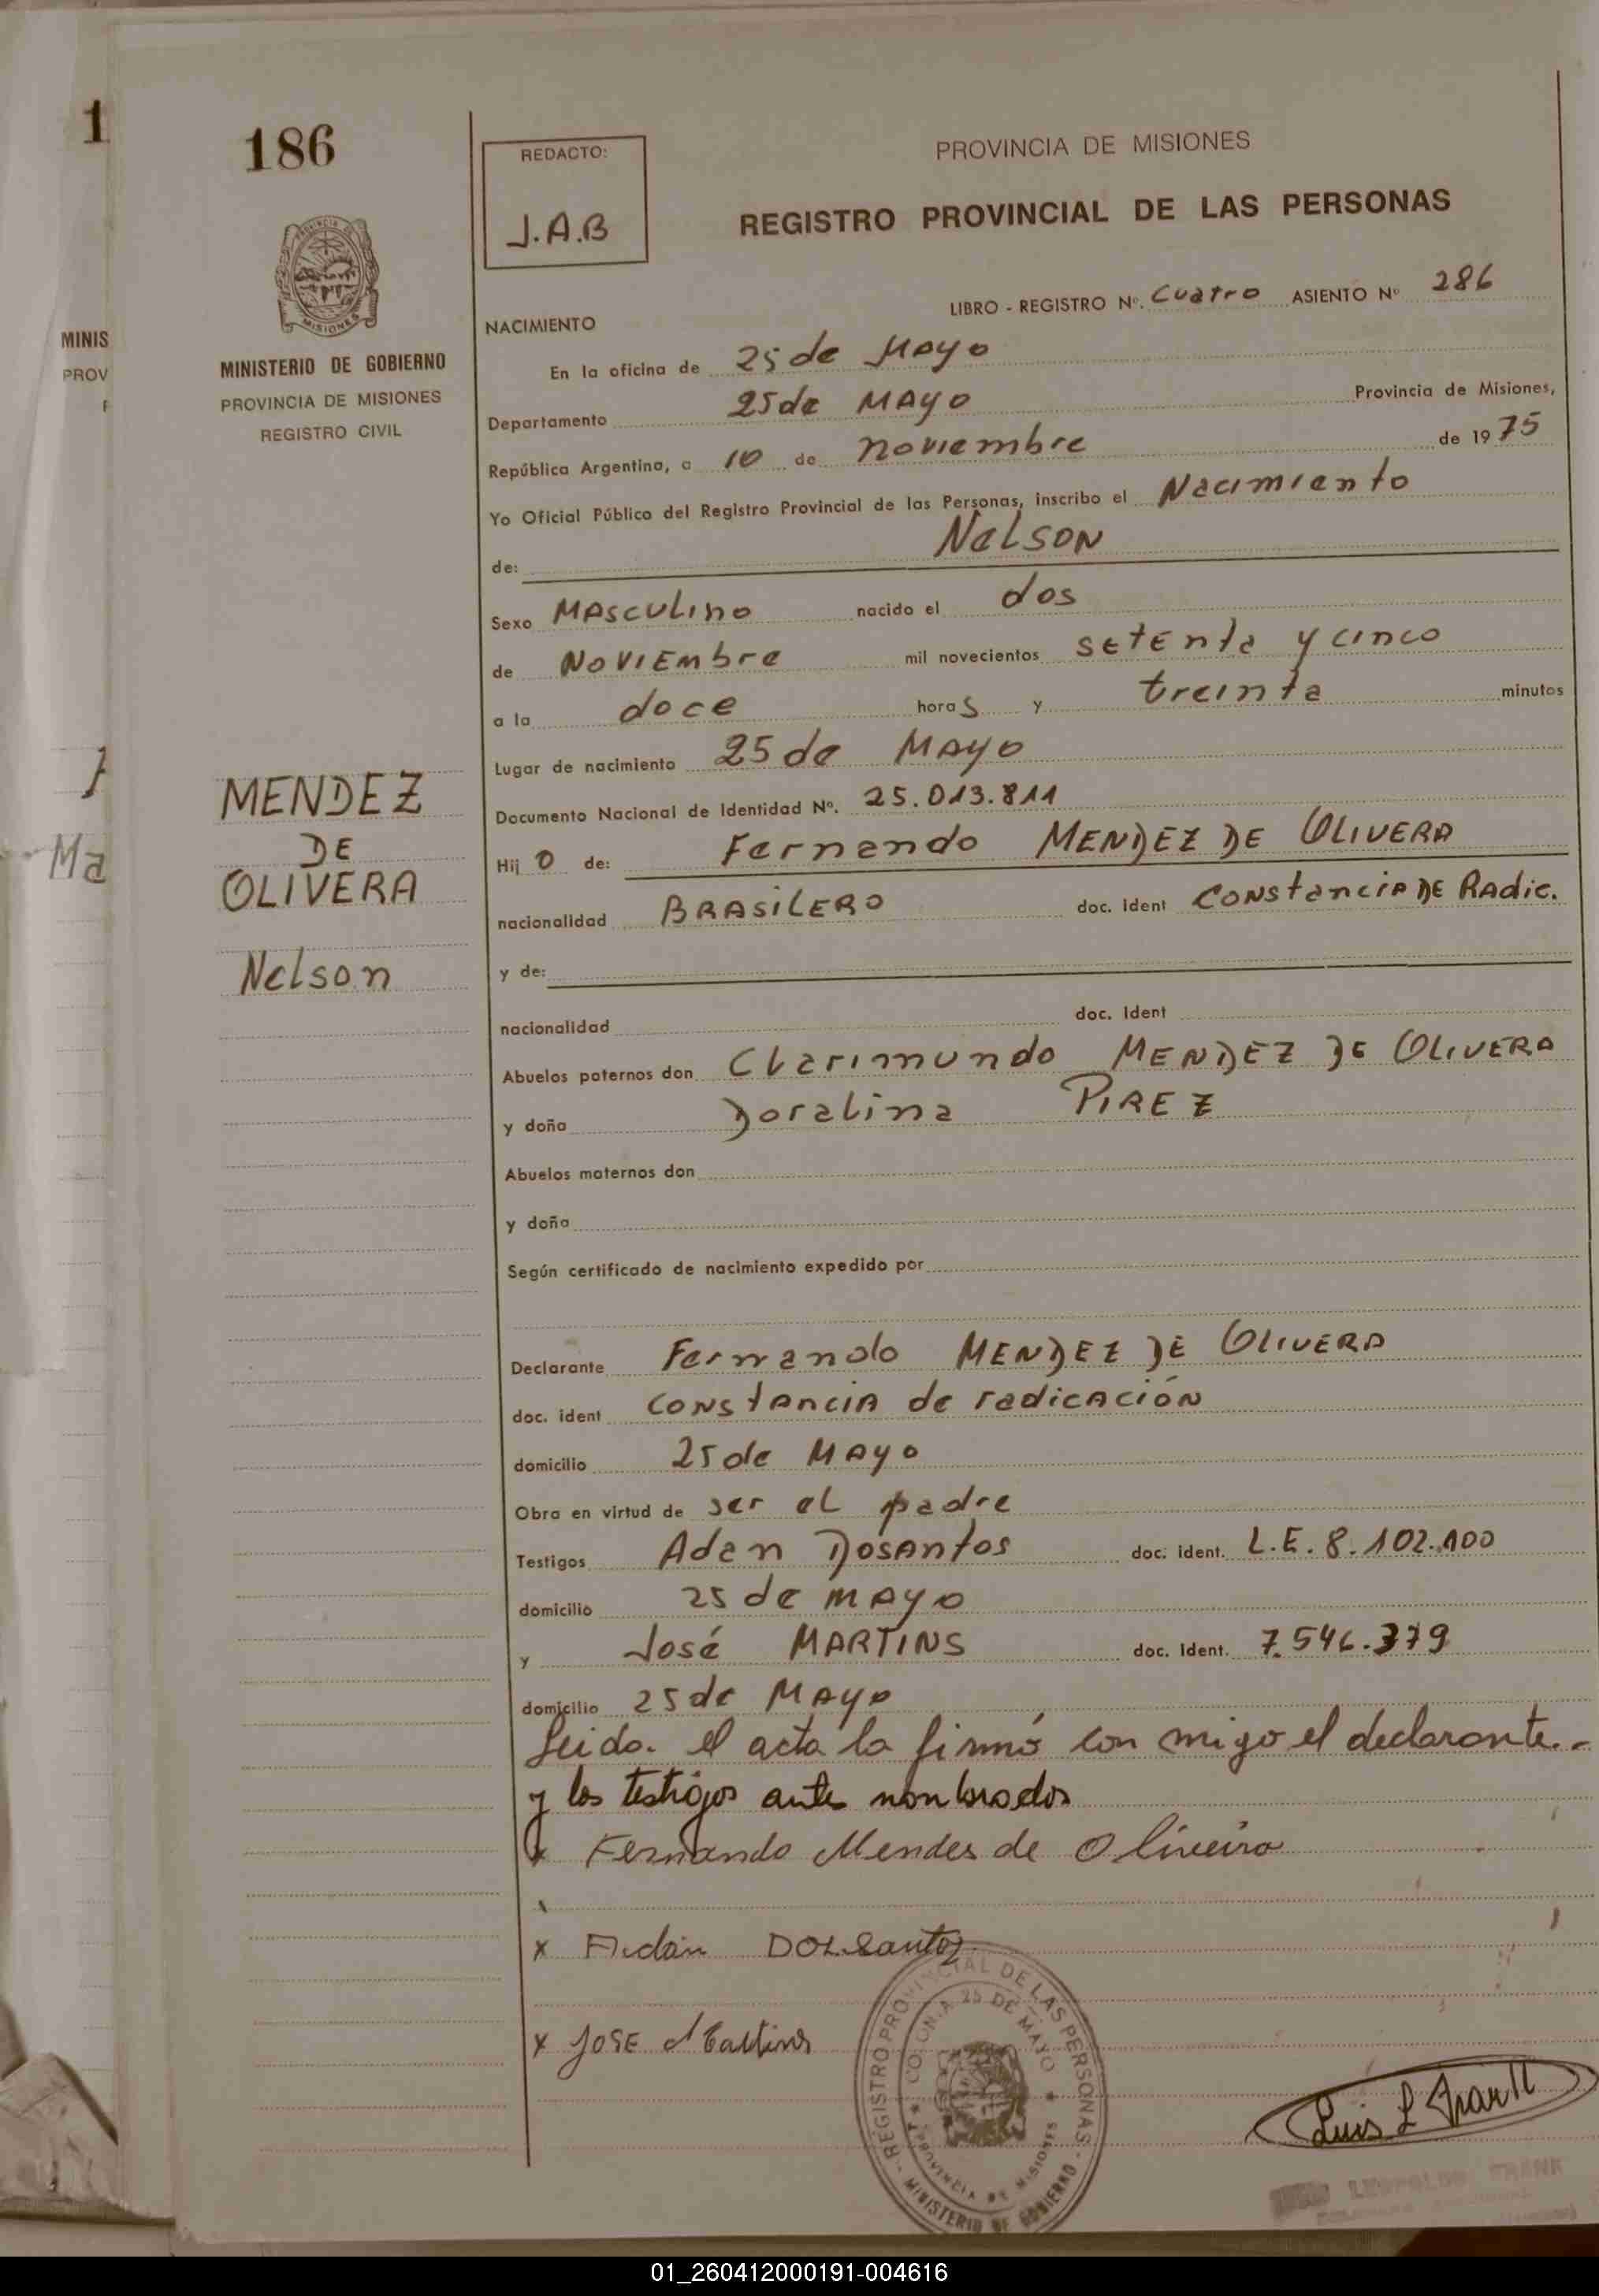 1
186
MINIS
PROV
Ma
MINISTERIO DE GOBIERNO
PROVINCIA DE MISIONES
REGISTRO CIVIL
MENDEZ
DE
OLIVERA
Nelson
REDACTO:
J.A.B
PROVINCIA DE MISIONES
REGISTRO PROVINCIAL DE LAS PERSONAS
LIBRO - REGISTRO Nº. Cuatro ASIENTO Nº 286
NACIMIENTO
En la oficina de 25 de Mayo
Departamento 25 de Mayo Provincia de Misiones,
República Argentina, a 10 de noviembre de 1975
Yo Oficial Público del Registro Provincial de las Personas, inscribo el Nacimiento
de: Nelson
Sexo Masculino nacido el dos
de Noviembre mil novecientos setenta y cinco
a la doce horas y treinta minutos
Lugar de nacimiento 25 de Mayo
Documento Nacional de Identidad Nº. 25.013.811
Hijo de: Fernando MENDEZ DE OLIVERA
nacionalidad BRASILERO doc. ident Constancia DE Radic.
y de:
nacionalidad doc. Ident
Abuelos paternos don Clarimundo MENDEZ DE OLIVERA
y doña Doralina PIREZ
Abuelos maternos don
y doña
Según certificado de nacimiento expedido por
Declarante Fernando MENDEZ DE OLIVERA
doc. ident Constancia de radicación
domicilio 25 de Mayo
Obra en virtud de ser el padre
Testigos Adan Dosantos doc. ident. L.E. 8.102.100
domicilio 25 de mayo
y José MARTINS doc. Ident. 7.546.379
domicilio 25 de Mayo
Leida el acta la firmó con migo el declarante.-
y los testigos antes nombrados
x Fernando Mendes de Oliveira
x DOLSantos
x JOSE Martins
REGISTRO PROVINCIAL DE LAS PERSONAS
COLONIA 25 DE MAYO
PROVINCIA DE MISIONES
MINISTERIO DE GOBIERNO
Luis L Frank
LEOPOLDO FRANK
01_260412000191-004616